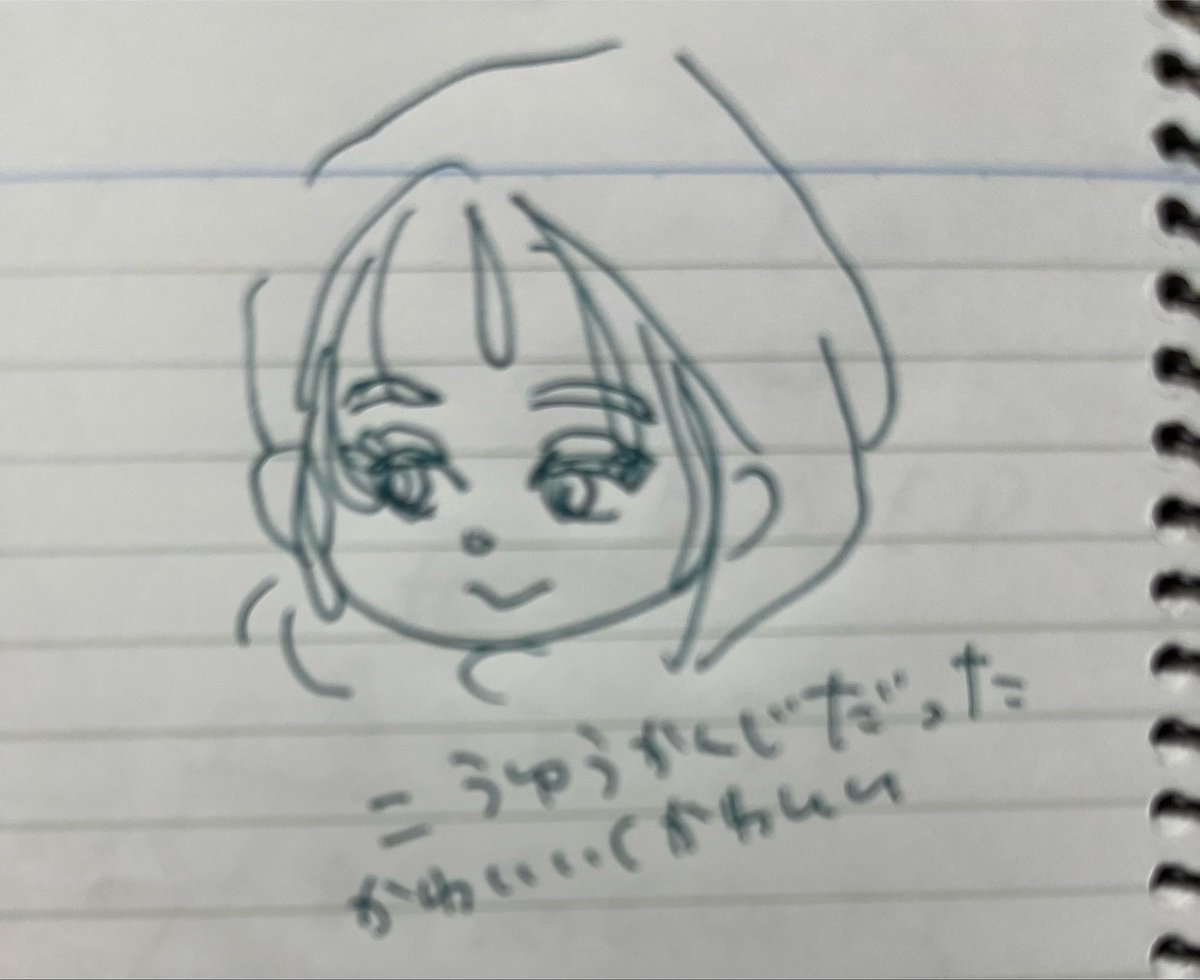 こうゆうかんじだった
かわいい、、、(かわいい